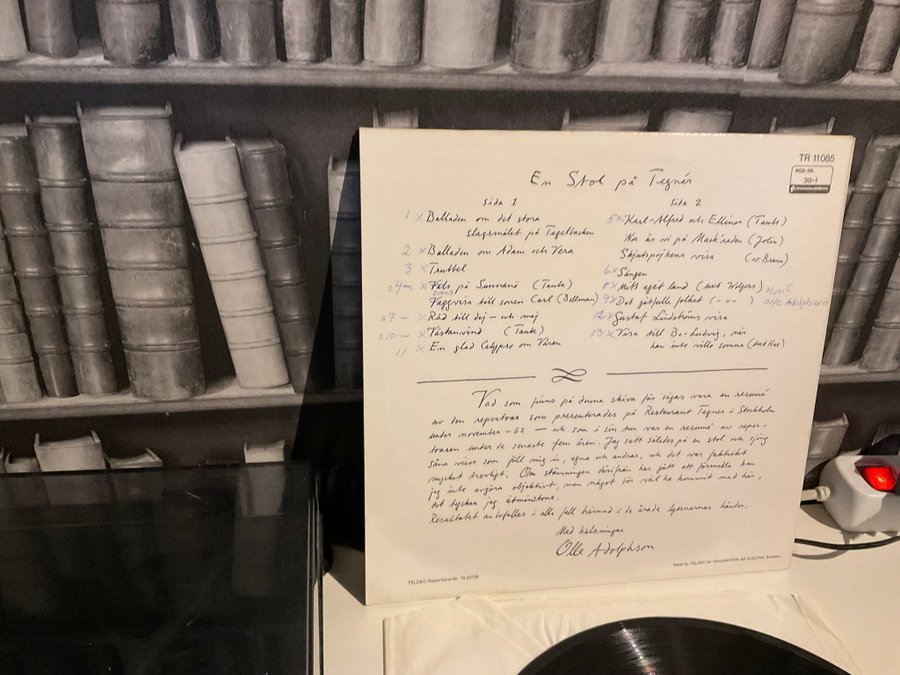 TR 11085
KOD. NR.
30-1
En Stol på Tegnér
Sida 1
1 x Balladen om det stora
slagsmålet på Tegelbacken
2 x Balladen om Adam och Vera
3 x Trubbel
s4 — x Vals på Sunnanö (Taube)
Vaggvisa till sonen Carl (Bellman)
s7 — x Råd till dej – och mej
s10 — x Västanvind (Taube)
11 x En glad Calypso om Våren
Sida 2
5 x Karl-Alfred och Ellinor (Taube)
Nu är vi på Mack'raden (Jolin)
Skjutspojkens visa (v. Braun)
6 x Sången
8 x Mitt eget land (text Wolgers)
9 x Det gåtfulla folket (– " –)
Olle Adolphson
12 x Gustaf Lindströms visa
13 x Visa till B. Ludvig, när
han inte ville somna (text Hax)
Vad som finns på denna skiva får sägas vara en resumé
av den repertoar som presenterades på Restaurant Tegnér i Stockholm
under november -62 — och som i sin tur var en resumé av reper-
toaren under de senaste fem åren. Jag satt således på en stol och sjöng
såna visor som föll mig in, egna och andras, och det var faktiskt
mycket trevligt. Om stämningen därifrån har gått att förmedla kan
jag inte avgöra objektivt, men något bör väl ha kommit med här,
det tycker jag åtminstone.
Resultatet anbefalles i alla fall härmed i de ärade lyssnarnas händer.
Med hälsningar
Olle Adolphson
TELDEC-Repertoire-Nr. 76.22708
Made by TELDEC for GRAMMOFON AB ELECTRA, Sweden